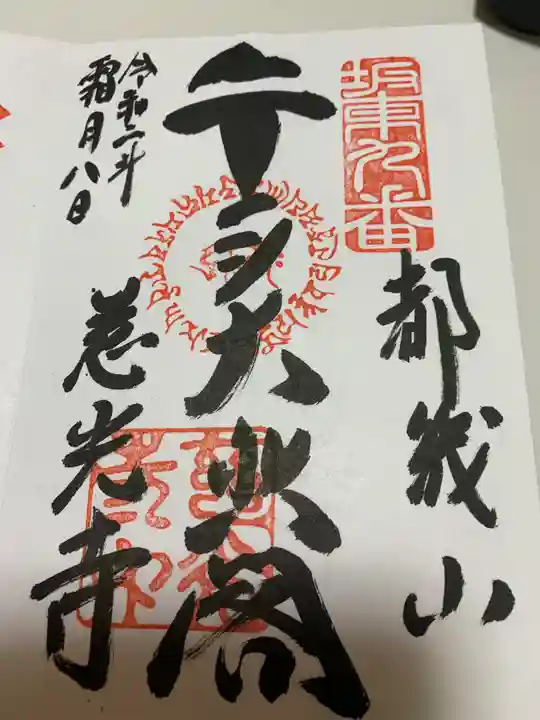 坂東九番
都幾山
千手大悲閣
慈光寺
令和二年
霜月八日